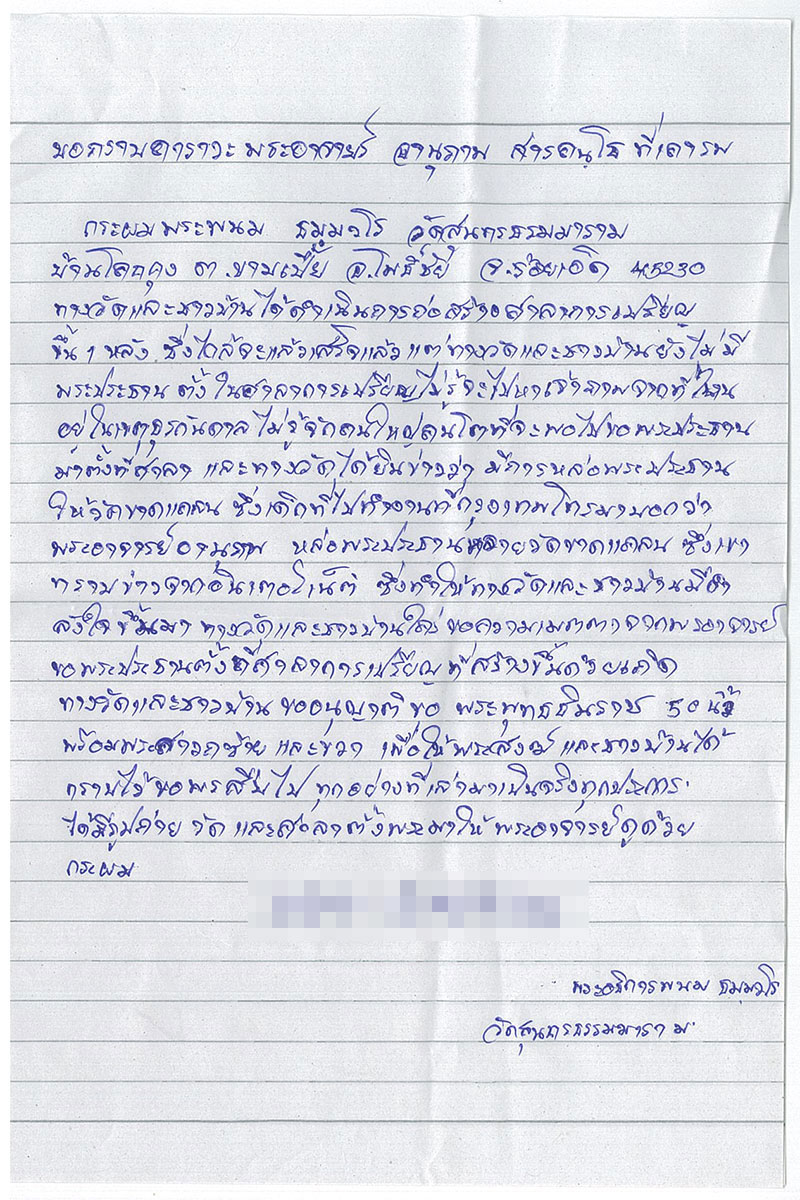 ขอกราบคาราวะ พระอาจารย์ อานุภาพ สารคนฺโธ ที่เคารพ
กระผมพระพนม ธมฺมวโร วัดสุนทรธรรมาราม
บ้านโคกคุง ต.ขามเปี้ย อ.โพธิ์ชัย จ.ร้อยเอ็ด 45230
ทางวัดและชาวบ้านได้ดำเนินการก่อสร้างศาลาการเปรียญ
ขึ้น 1 หลัง ซึ่งใกล้จะแล้วเสร็จแล้ว แต่ทางวัดและชาวบ้านยังไม่มี
พระประธาน ตั้งในศาลาการเปรียญ ไม่รู้จะไปหาเจ้าภาพจากที่ไหน
อยู่ในเขตธุรกันดาล ไม่รู้จักคนใหญ่คนโตที่จะพอไปขอพระประธาน
มาตั้งที่ศาลา และทางวัดได้ยินข่าวว่า มีการหล่อพระประธาน
ให้วัดขาดแคลน ซึ่งเด็กที่ไปทำงานที่กรุงเทพโทรมาบอกว่า
พระอาจารย์อานุภาพ หล่อพระประธานหลายวัดขาดแคลน ซึ่งเขา
ทราบข่าวจากอินเตอร์เน็ต ซึ่งทำให้ทางวัดและชาวบ้านมีกำ
ลังใจขึ้นมา ทางวัดและชาวบ้านใคร่ขอความเมตตาจากพระอาจารย์
ขอพระประธานตั้งที่ศาลาการเปรียญที่สร้างขึ้นด้วยเถิด
ทางวัดและชาวบ้าน ขออนุญาติขอ พระพุทธชินราช 50 นิ้ว
พร้อมพระสาวกซ้าย และขวา เพื่อให้พระสงฆ์ และชาวบ้านได้
กราบไว้ขอพรสืบไป ทุกอย่างที่เล่ามาเป็นจริงทุกประการ
ได้มีรูปถ่าย วัด และศาลาตั้งพระมาให้ พระอาจารย์ดูด้วย
กระผม
พระอธิการพนม ธมฺมวโร
วัดสุนทรธรรมมาราม